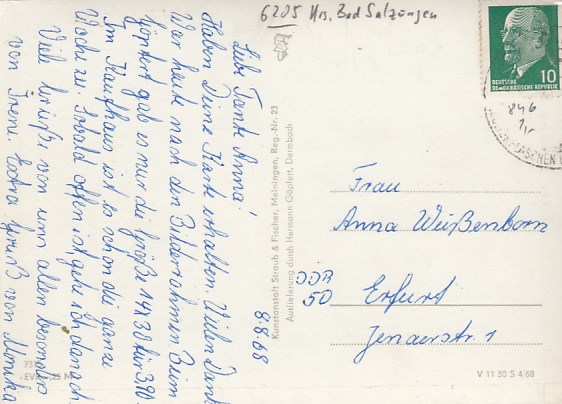 6205 Krs. Bad Salzungen
8.8.68
Liebe Tante Anna!
Haben Deine Karte erhalten. Vielen Dank
War heute nach den Bilderrahmen. Beim
Göpfert gab es nur die Größe 14x30 für 3,90.-
Im Kaufhaus ist schon die ganze
Woche zu. Sobald offen ist, gehe ich danach
Viele Grüße von uns allen besonders
von Irene. Extra Gruß von Monika
Kunstanstalt Straub & Fischer, Meiningen, Reg.-Nr. 23
Auslieferung durch Hermann Göpfert, Dermbach
DEUTSCHE
DEMOKRATISCHE REPUBLIK
10
846
Frau
Anna Weißenborn
DDR
50 Erfurt
Jenaerstr. 1
V 11 50 S 4/68